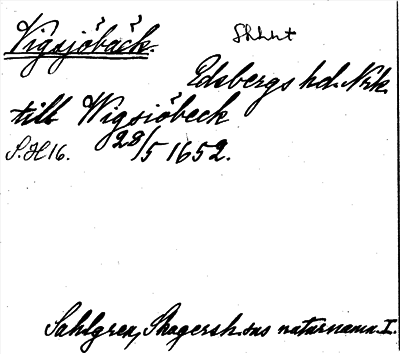 Vigsjöbäck.
Skhert
Edsbergs hd. Nrk.
till Wigsiöbeck
S. H 16. 28/5 1652.
Sahlgren, Skagersh.sns naturnamn. I.